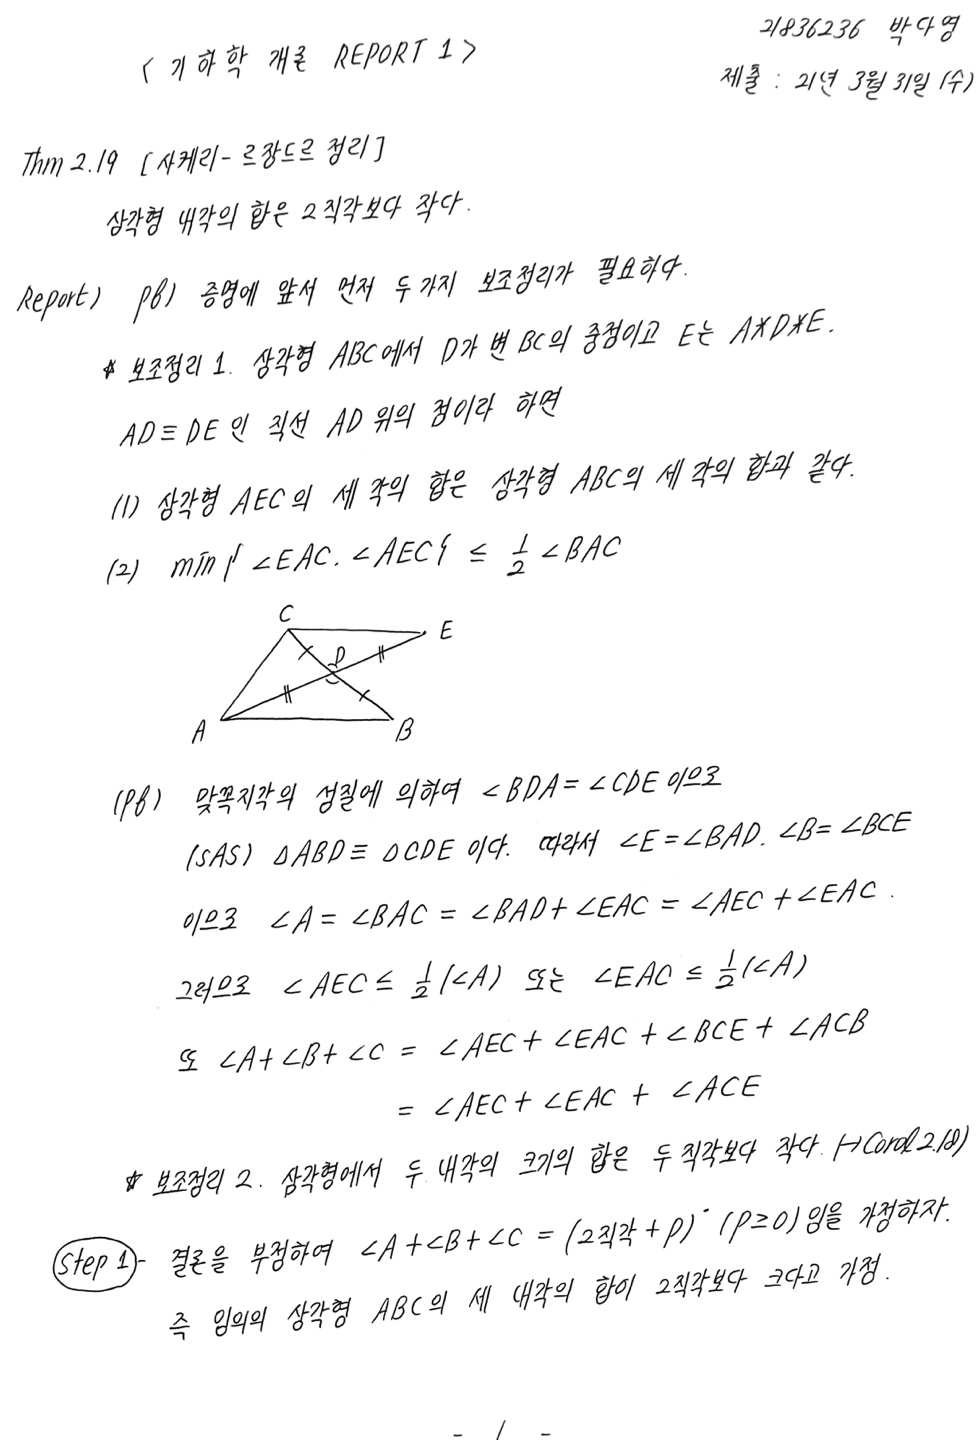 21836236 박다영
< 기하학 개론 REPORT 1 >
제출 : 21년 3월 31일 (수)
Thm 2.19 [사케리-르장드르 정리]
삼각형 내각의 합은 2직각보다 작다.
Report) pf) 증명에 앞서 먼저 두 가지 보조정리가 필요하다.
* 보조정리 1. 삼각형 ABC에서 D가 변 BC의 중점이고 E는 A*D*E.
AD≡DE 인 직선 AD 위의 점이라 하면
(1) 삼각형 AEC의 세 각의 합은 삼각형 ABC의 세 각의 합과 같다.
(2) min{ ∠EAC. ∠AEC} ≤ 1/2 ∠BAC
C
E
D
A
B
(pf) 맞꼭지각의 성질에 의하여 ∠BDA = ∠CDE 이으로
(SAS) △ABD ≡ △CDE 이다. 따라서 ∠E = ∠BAD. ∠B = ∠BCE
이으로 ∠A = ∠BAC = ∠BAD + ∠EAC = ∠AEC + ∠EAC .
그러으로 ∠AEC ≤ 1/2 (∠A) 또는 ∠EAC ≤ 1/2 (∠A)
또 ∠A + ∠B + ∠C = ∠AEC + ∠EAC + ∠BCE + ∠ACB
= ∠AEC + ∠EAC + ∠ACE
* 보조정리 2. 삼각형에서 두 내각의 크기의 합은 두 직각보다 작다. (→Corol 2.18)
Step 1 - 결론을 부정하여 ∠A + ∠B + ∠C = (2직각 + p)˚ (p≥0) 임을 가정하자.
즉 임의의 삼각형 ABC의 세 내각의 합이 2직각보다 크다고 가정.
- 1 -